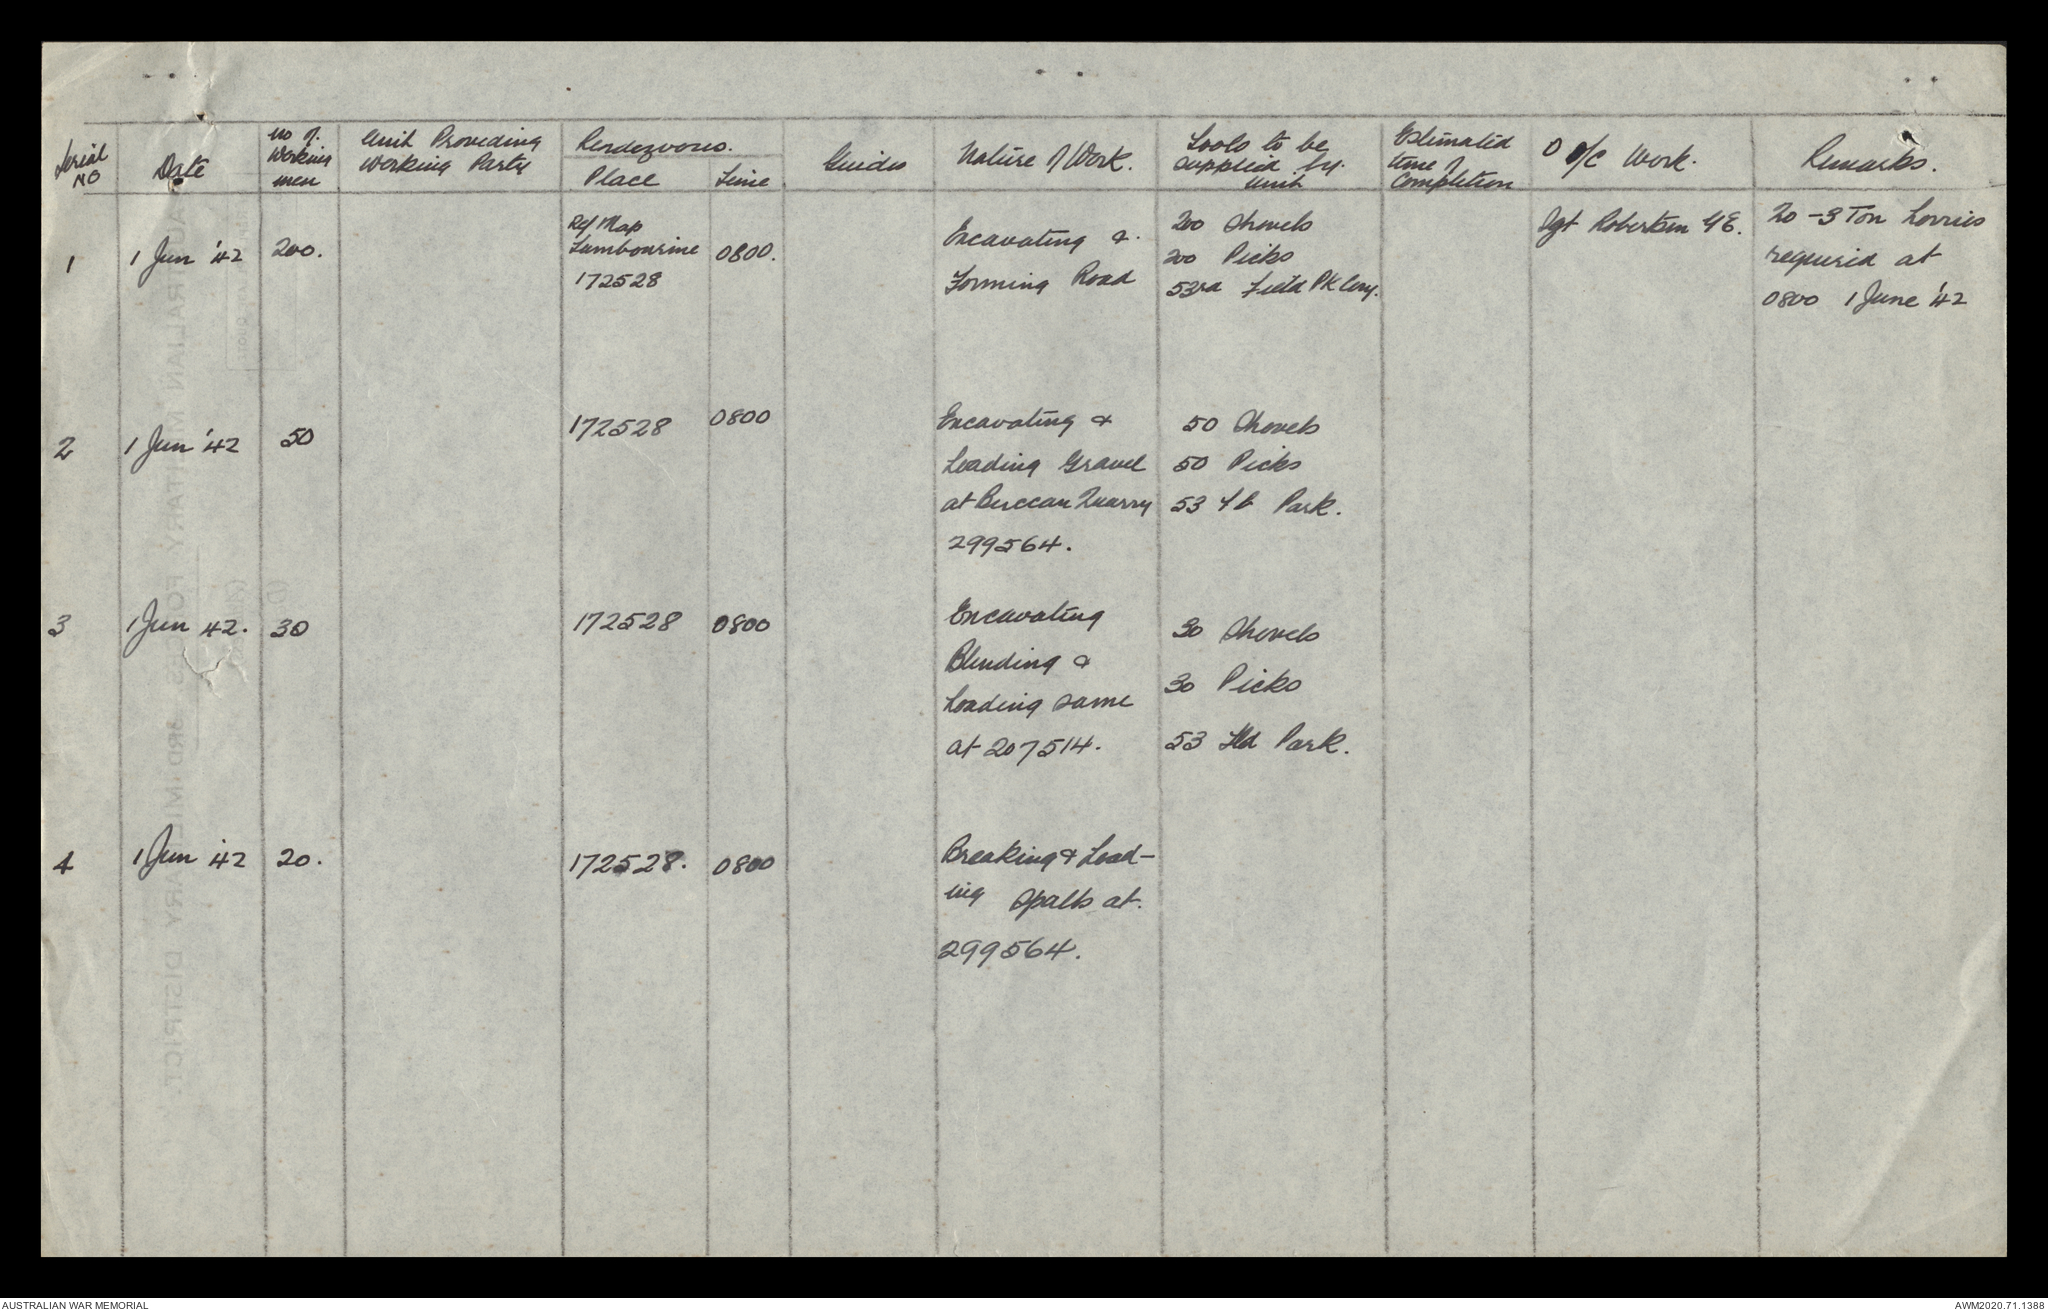 Serial No
Date
No of Working men
Unit Providing Working Party
Rendezvous.
Place
Time
Guides
Nature of Work.
Tools to be supplied by Unit
Estimated time of Completion
O i/c Work.
Remarks.
1
1 Jun '42
200.
Ref Map
172528
0800.
Excavating &
Forming Road
200 Shovels
200 Picks
53rd Field PK Coy.
Sgt Robertson
20 - 3 Ton Lorries
required at
0800 1 June '42
2
1 Jun '42
50
172528
0800
Excavating &
Loading Gravel
at Buccan Quarry
299564.
50 Shovels
50 Picks
53 Park.
3
1 Jun 42.
30
172528
0800
Excavating
Blending &
Loading same
at 207514.
30 Shovels
30 Picks
53 Fld Park.
4
1 Jun '42
20.
172528.
0800
Breaking & Load-
ing Spalls at
299564.
AUSTRALIAN MILITARY FORCES. 3RD MILITARY DISTRICT
AUSTRALIAN WAR MEMORIAL
AWM2020.71.1388